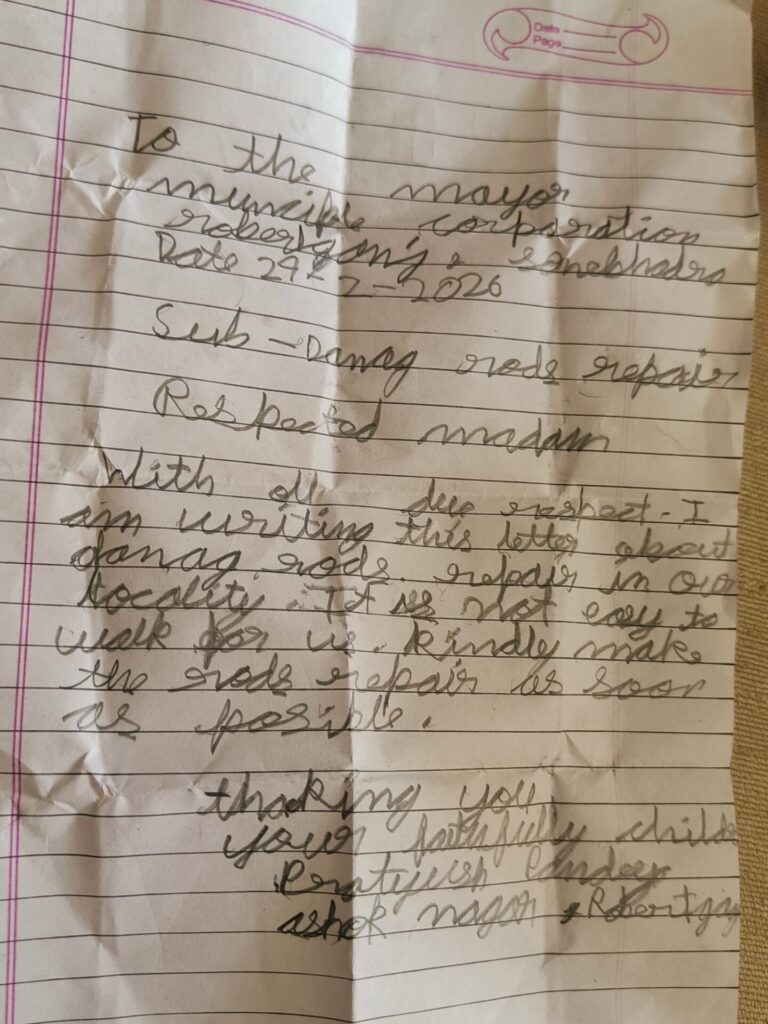 Date
Page
To the mayor
munciple corparation
robertganj, sonebhadra
Date 29-2-2026
Sub - Danag rods repair
Respected madam
With all due respect. I
am writing this letter about
danag rods repair in our
locality. It is not easy to
walk for us. Kindly make
the rods repair as soon
as posible.
thanking you
your faithfully child
Pratyush Pandey
ashok nagar, Robertganj